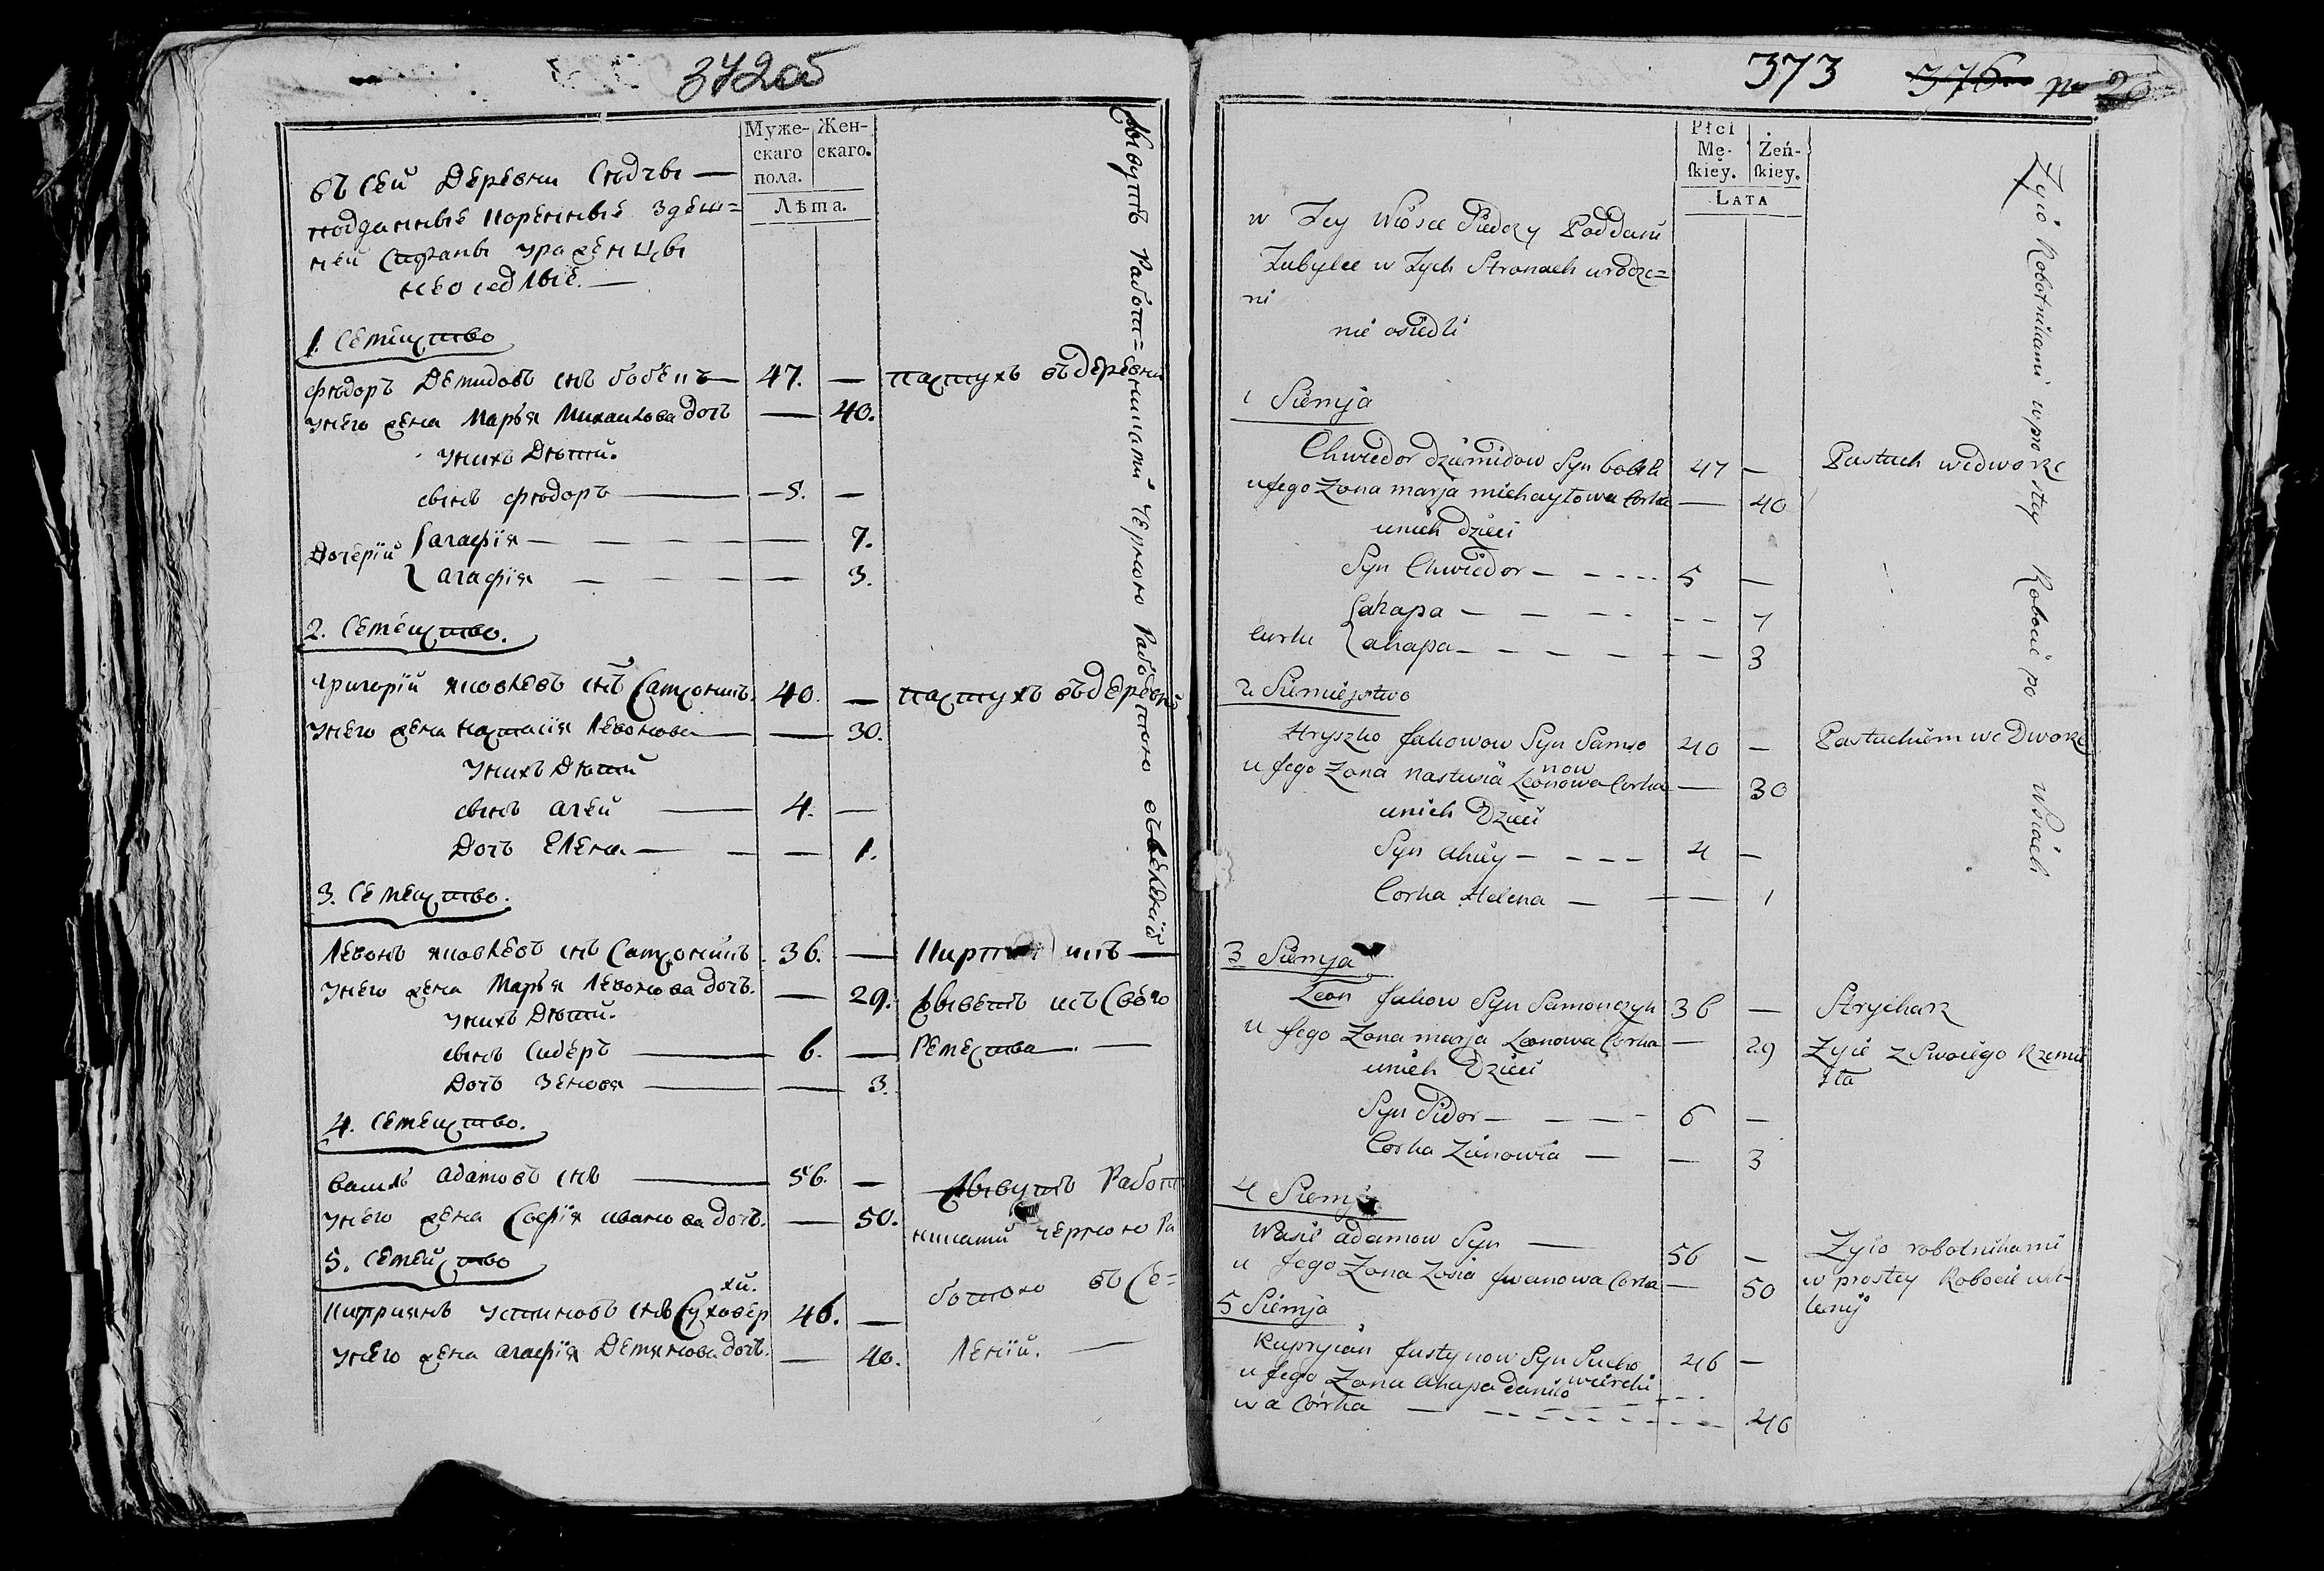 372об
Муже- Жен-
скаго скаго.
пола.
Лѣта.
въ сей деревни Сѣдчы —
подданныѐ коренныѐ здеш=
ней страны ураженцы
неоседлыѐ. —
1. Семейство
Фѣдоръ Демидовъ снъ бобекъ — 47. — пастухъ въ деревни
унего жена Марья Михаилова дочь — 40.
унихъ дѣтй.
сынъ Фѣдоръ — 5. —
дочерїй { агафїя — — — — — 7.
{ агафїя — — — — 3.
2. Семейство.
Григорїй яковлевъ снъ Самсоникъ. 40. — пастухъ въ деревни
унего жена настасiя левонова — 30.
унихъ дѣтй
сынъ агей — 4. —
дочъ елена — — — 1.
3. Семейство.
левонъ яковлевъ снъ Самсоникъ 36. —
унего жена Марья левонова дочъ. — 29. живетъ изъ своего
унихъ дѣтй.
сынъ Сидеръ — 6. — ремества. —
дочъ зеновя — 3.
4. Семейство.
василь адамовъ снъ — 56. — живутъ работ
унего жена Софїя иванова дочъ. — 50. никами черною ра
5. Семейство
хи.
Киприянъ устиновъ снъ Сухавер 46. — ботою въ се=
унего жена агафїя демянова дочъ. — 40. ленїй. —
живутъ работ=никами черною работою
373 376 20
Płci
Mę- Żeń-
ſkiey. ſkiey.
Lata
w Tey Wiosce Siedczy Poddani
Tubylce w Tych Stronach urodze=
ni
nie osiedli
1 Siemja
Chwiedor dziemidow Syn bobek 47 — Pastuch wedworze
u Jego Zona marja michayłowa Corka — 40
unich dzieci
Syn Chwiedor — - - - - 5 —
Corki { ahapa — — — - - - - 7
{ ahapa — — — — — - — 3
2 Siemiejstwo
Hryszko Jakowow Syn Samso 40 — Pastuchiem we Dworze
now
u Jego Zona nastusia Leonowa Corka — 30
unich Dzieci
Syn ahiey — - - - — 4 —
Corka Helena — — — 1
3 Siemja
Leon Jakow Syn Samonczyk 36 — Strycharz
u Jego Zona marja Leonowa Corka — 29 Zyie z Swoiego Rzemie
unich Dzieci sła
Syn Sidor — — — - 6 —
Corka Zienowia — — 3
4 Siemja
Wasil adamow Syn — 56 — Zyio robotnikami
u Jego Zona Zosia Jwanowa Corka — 50 w prostey Robocie
5 Siemja
Kupryian Justynow Syn Sucho 46 —
wierchi
u Jego Zona ahapa danilo - - - -
wa Córka — - - - - - - 40
Zyio Robotnikami w prostey Robocie po Wsiach